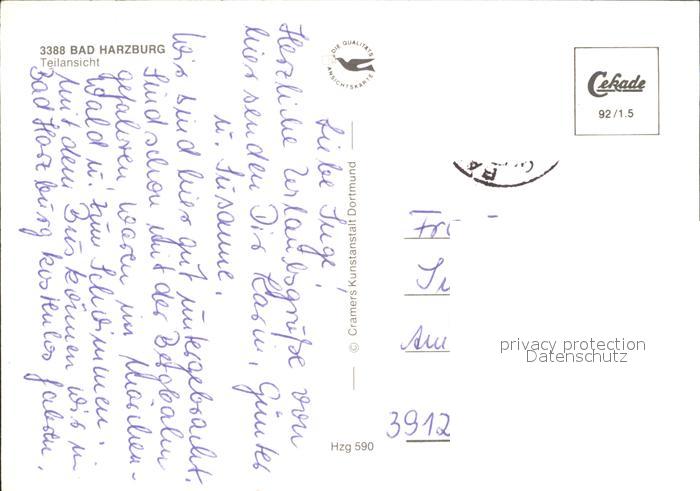 3388 BAD HARZBURG
Teilansicht
DIE QUALITÄTS
ANSICHTSKARTE
Cekade
92/1.5
Liebe Inge!
Herzliche Urlaubsgrüße von
hier senden Dir Karin, Günter
u. Susanne.
Wir sind hier gut untergebracht.
Sind schon mit der Bergbahn
gefahren, waren im Märchen-
wald u. zum Schwimmen.
Mit dem Bus können wir in
Bad Harzburg kostenlos fahren.
© Cramers Kunstanstalt Dortmund
Hzg 590
3912
privacy protection
Datenschutz